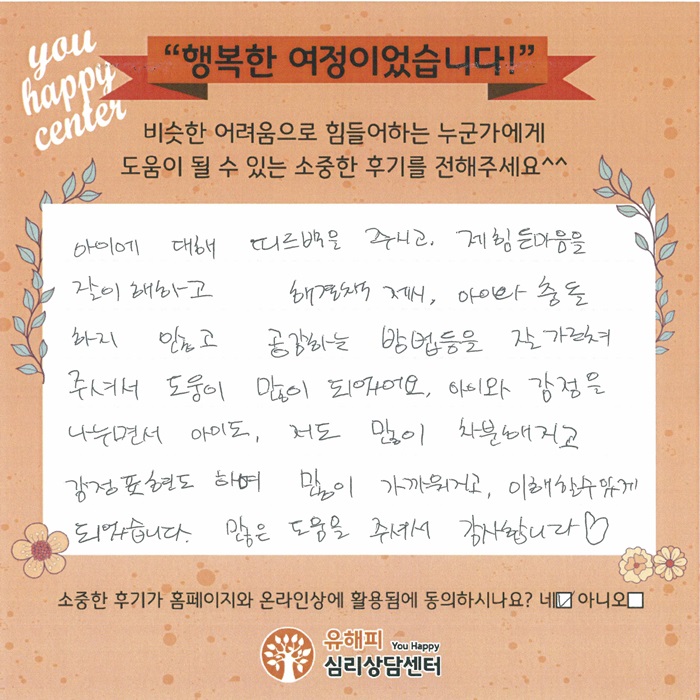 you
happy
center
“행복한 여정이었습니다!”
비슷한 어려움으로 힘들어하는 누군가에게
도움이 될 수 있는 소중한 후기를 전해주세요^^
아이에 대해 피드백을 주시고, 제힘든마음을
잘이해하고 해결책 제시, 아이와 충돌
하지 않고 공감하는 방법등을 잘가르쳐
주셔서 도움이 많이 되었어요, 아이와 감정을
나누면서 아이도, 저도 많이 차분해지고
감정표현도 하며 많이 가까워지고, 이해할수있게
되었습니다. 많은 도움을 주셔서 감사합니다♡
소중한 후기가 홈페이지와 온라인상에 활용됨에 동의하시나요? 네☑ 아니오☐
유해피 You Happy
심리상담센터